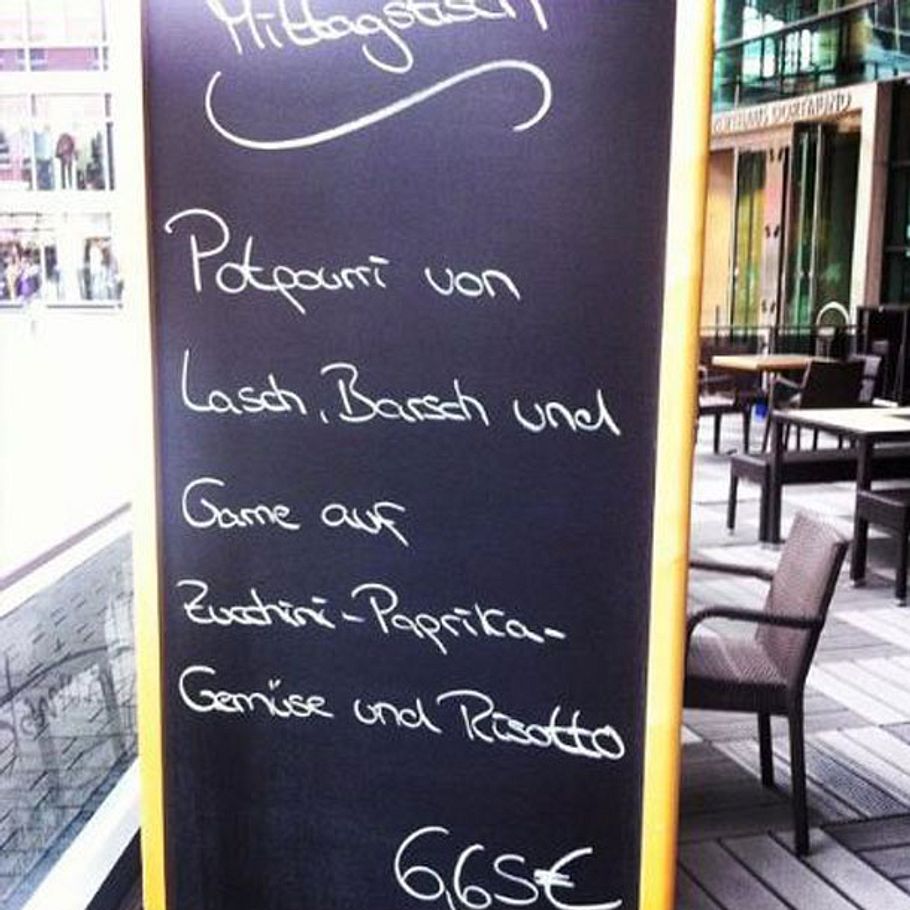 Mittagstisch
Potpourri von
Lasch, Barsch und
Garne auf
Zucchini-Paprika-
Gemüse und Risotto
6,65€
DORTMUND